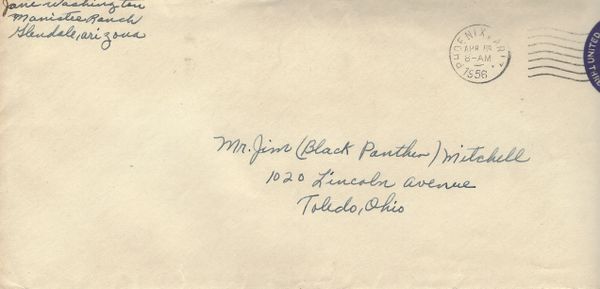 Jane Washington
Manistee Ranch
Glendale, arizona
PHOENIX, ARIZ.
APR
8-AM
1956
UNITED
Mr. Jim (Black Panther) Mitchell
1020 Lincoln avenue
Toledo, Ohio